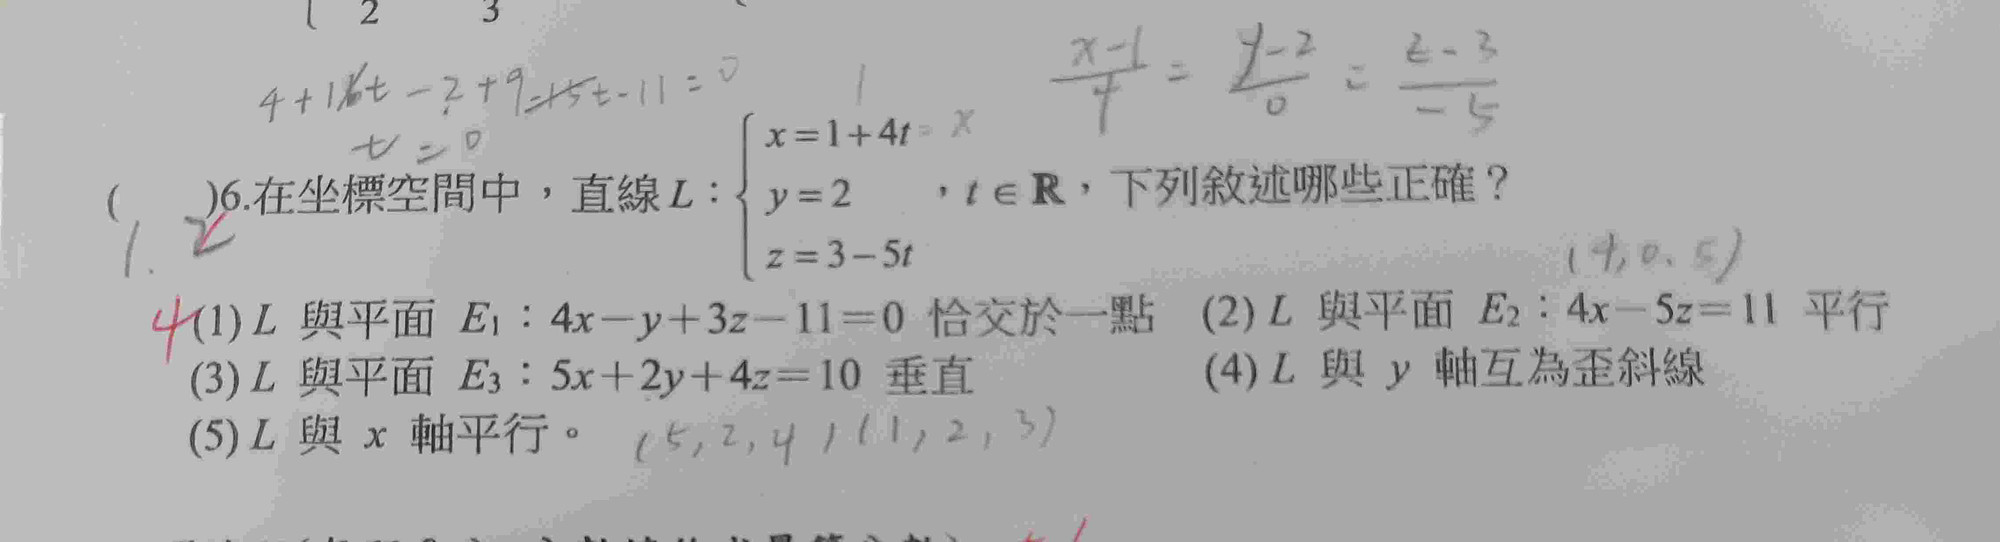 2 3
4+16t-2+9-15t-11=0
t=0
x-1/4 = y-2/0 = z-3/-5
1
x=1+4t=x
( )6.在坐標空間中，直線L：{ y=2 ，t∈ℝ，下列敘述哪些正確？
z=3-5t
1. 2
(4,0.5)
4
(1)L 與平面 E₁：4x-y+3z-11=0 恰交於一點 (2)L 與平面 E₂：4x-5z=11 平行
(3)L 與平面 E₃：5x+2y+4z=10 垂直 (4)L 與 y 軸互為歪斜線
(5)L 與 x 軸平行。 (5,2,4)(1,2,3)